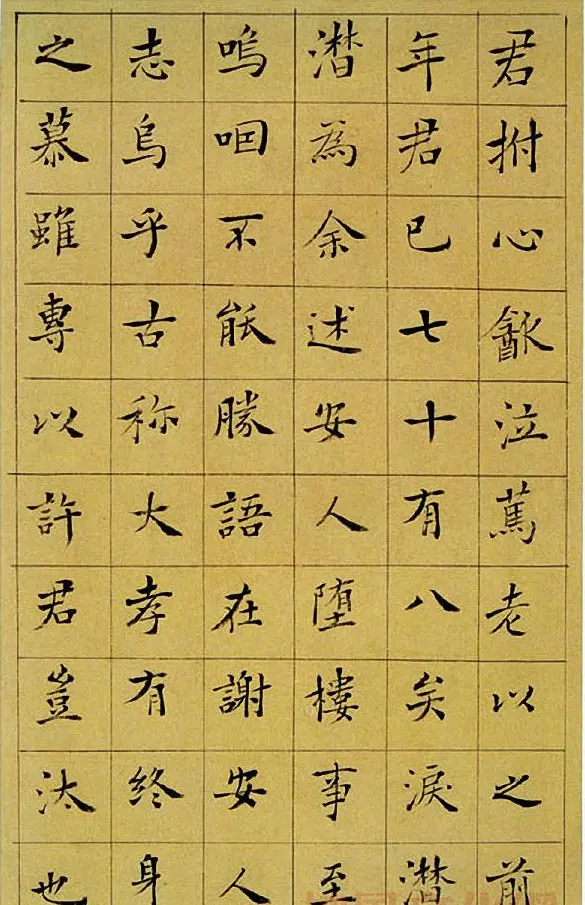 君拊心㱃泣篤老以之前
年君已七十有八矣淚潸
潸為余述安人堕樓事至
嗚咽不能勝語在謝安人
志烏乎古称大孝有終身
之慕雖專以許君豈汰也